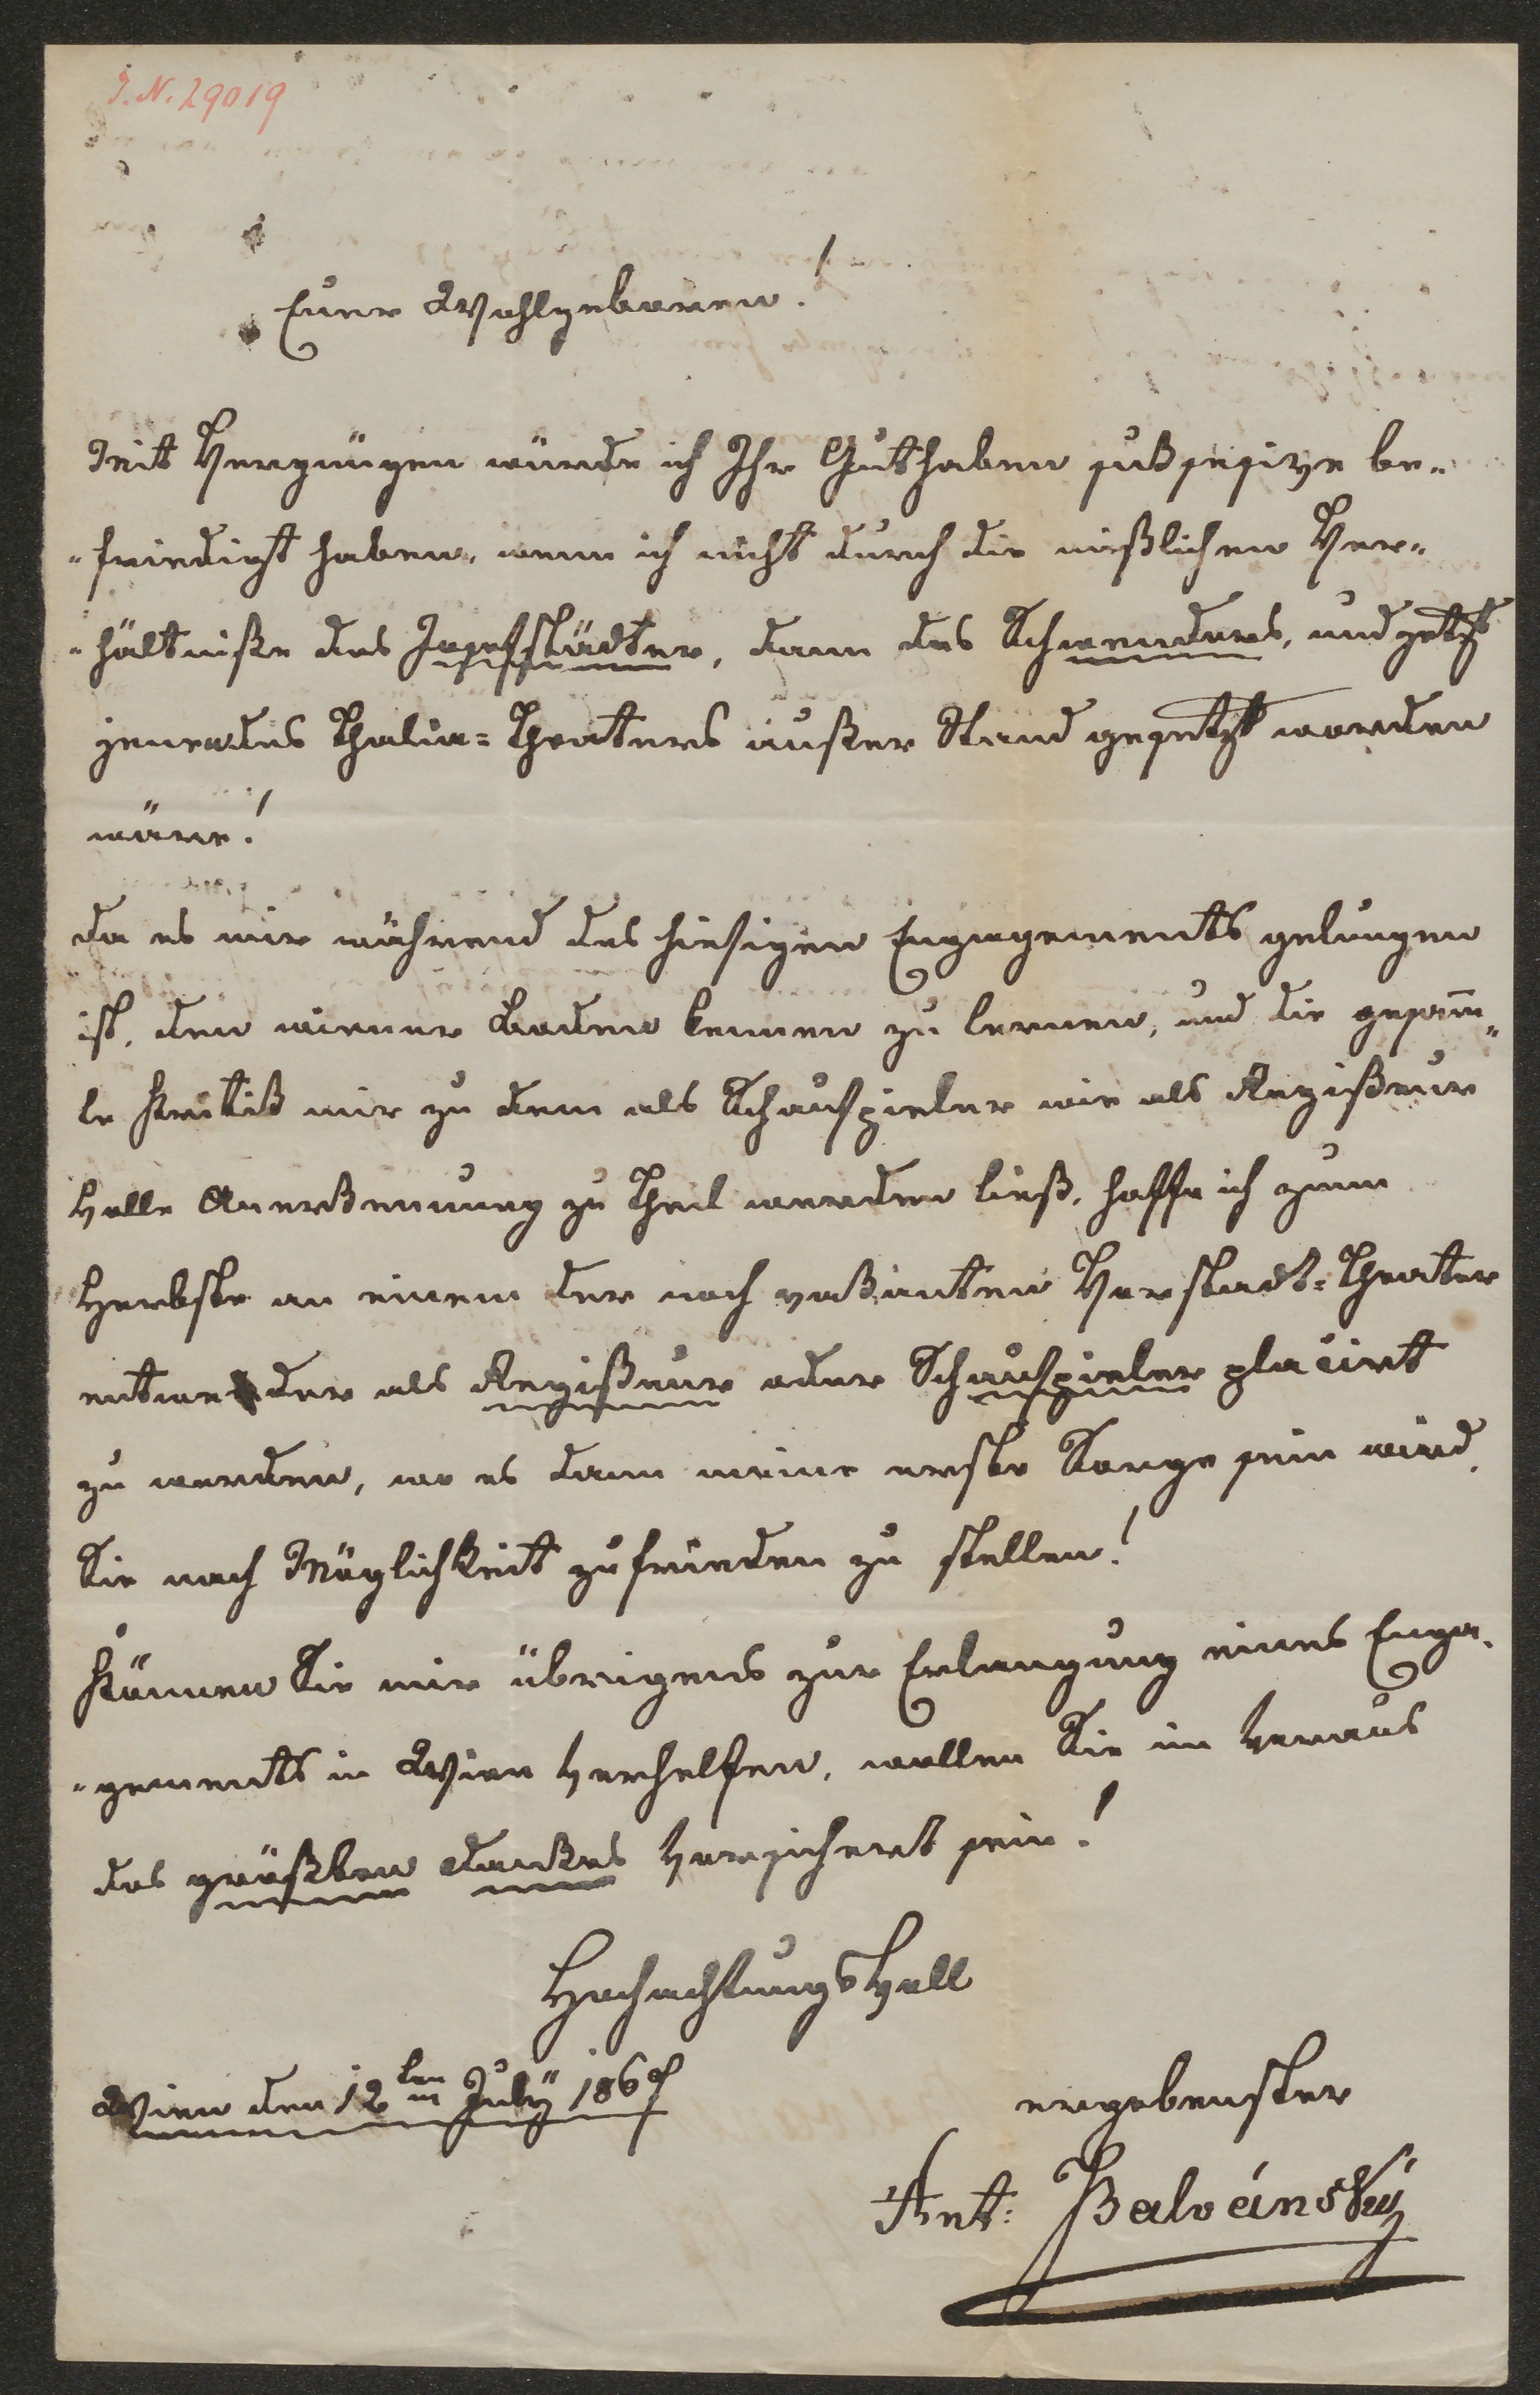 I. N. 29019
Euer Wohlgeboren!
Mit Vergnügen würde ich Ihr Guthaben be-
„friedigt haben, wenn ich nicht durch die mißlichen Ver-
„hältniße des Josefstädter, dann des Schwenders, und jetzt
jenes des Thalia-Theaters außer Stand gesetzt worden
wäre!
Da es mir während des hiesigen Engagements gelungen
ist, den wiener Boden kennen zu lernen, und die gesam̄„
te Kritik mir zu dem als Schauspieler wie als Regißeur
volle Anerkennung zu Theil werden ließ, hoffe ich zum
Herbste an einem der noch vakanten Vorstadt-Theater
entweder als Regißeur oder Schauspieler placirt
zu werden, wo es dann meine erste Sorge sein wird,
Sie nach Möglichkeit zufrieden zu stellen!
Können Sie mir übrigens zur Erlangung eines Enga-
„gements in Wien verhelfen, wollen Sie im Voraus
des größten Dankes versichert sein!
Hochachtungsvoll
Wien den 12ten July 1869
ergebenster
Ant: Balvánsky